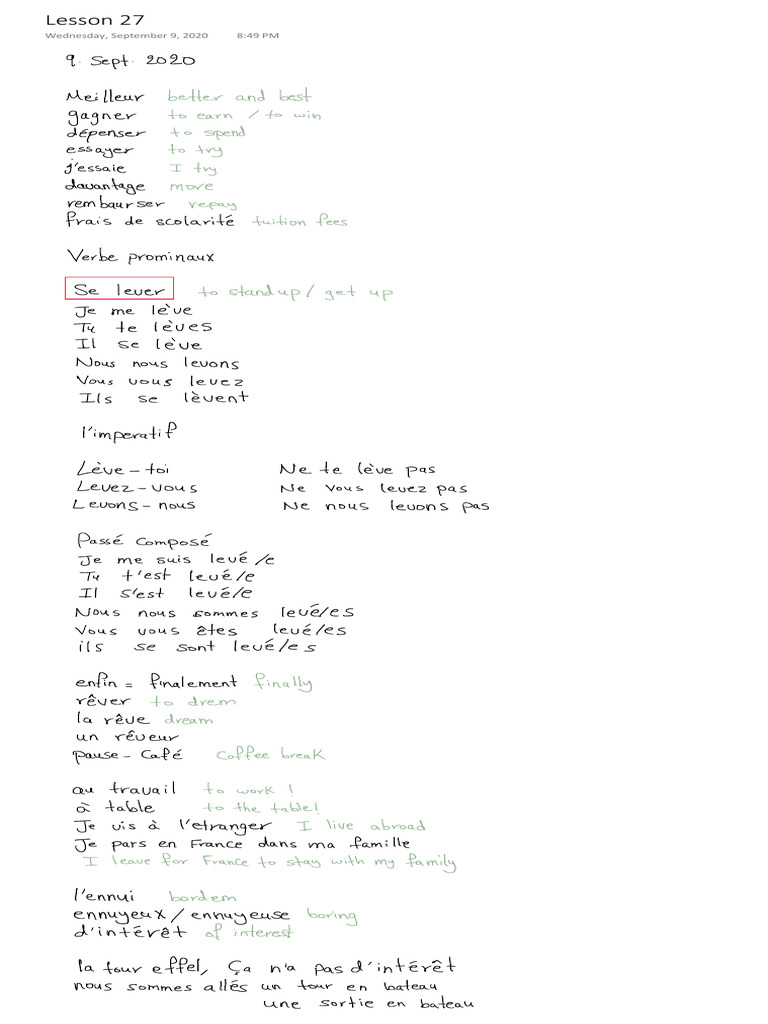 Lesson 27
Wednesday, September 9, 2020 8:49 PM
9. Sept. 2020
Meilleur better and best
gagner to earn / to win
dépenser to spend
essayer to try
j'essaie I try
davantage move
rembourser repay
frais de scolarité tuition fees
Verbe prominaux
Se lever to stand up / get up
Je me lève
Tu te lèves
Il se lève
Nous nous levons
Vous vous levez
Ils se lèvent
l'imperatif
Lève-toi Ne te lève pas
Levez-vous Ne vous levez pas
Levons-nous Ne nous levons pas
Passé composé
Je me suis levé/e
Tu t'est levé/e
Il s'est levé/e
Nous nous sommes levé/es
Vous vous êtes levé/es
ils se sont levé/es
enfin = finalement finally
rêver to drem
la rêve dream
un rêveur
pause-café coffee break
au travail to work !
à table to the table!
Je vis à l'etranger I live abroad
Je pars en France dans ma famille
I leave for France to stay with my family
l'ennui bordem
ennuyeux / ennuyeuse boring
d'intérêt of interest
la tour effel, Ça n'a pas d'intérêt
nous sommes allés un tour en bateau
une sortie en bateau